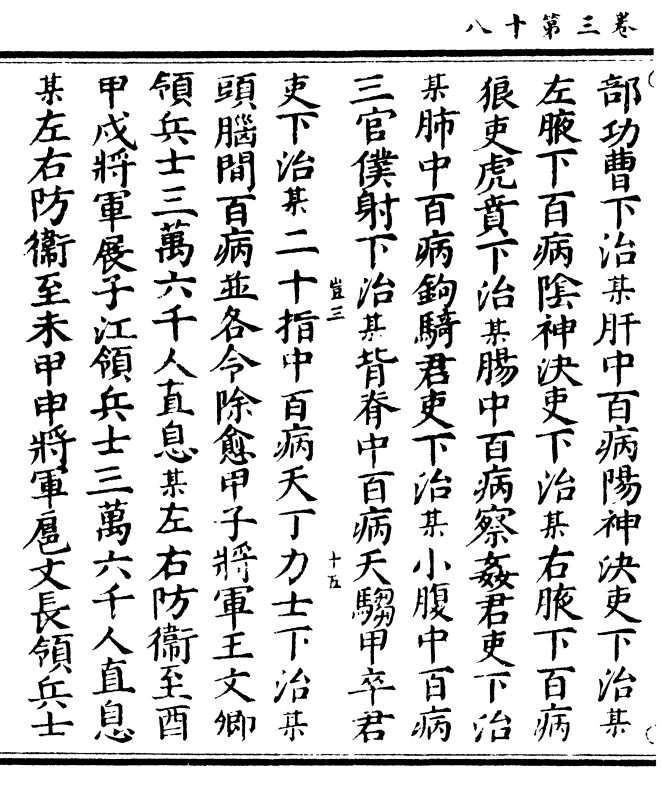 卷三第十八
部功曹下治某肝中百病陽神決吏下治某
左腋下百病陰神決吏下治某右腋下百病
狼吏虎賁下治某腸中百病察姦君吏下治
某肺中百病鉤騎君吏下治某小腹中百病
三官僕射下治某背脊中百病天騶甲卒君
豈三
十五
吏下治某二十指中百病天丁力士下治某
頭腦間百病並各令除愈甲子將軍王文卿
領兵士三萬六千人直息某左右防衞至酉
甲戌將軍展子江領兵士三萬六千人直息
某左右防衞至未甲申將軍扈文長領兵士